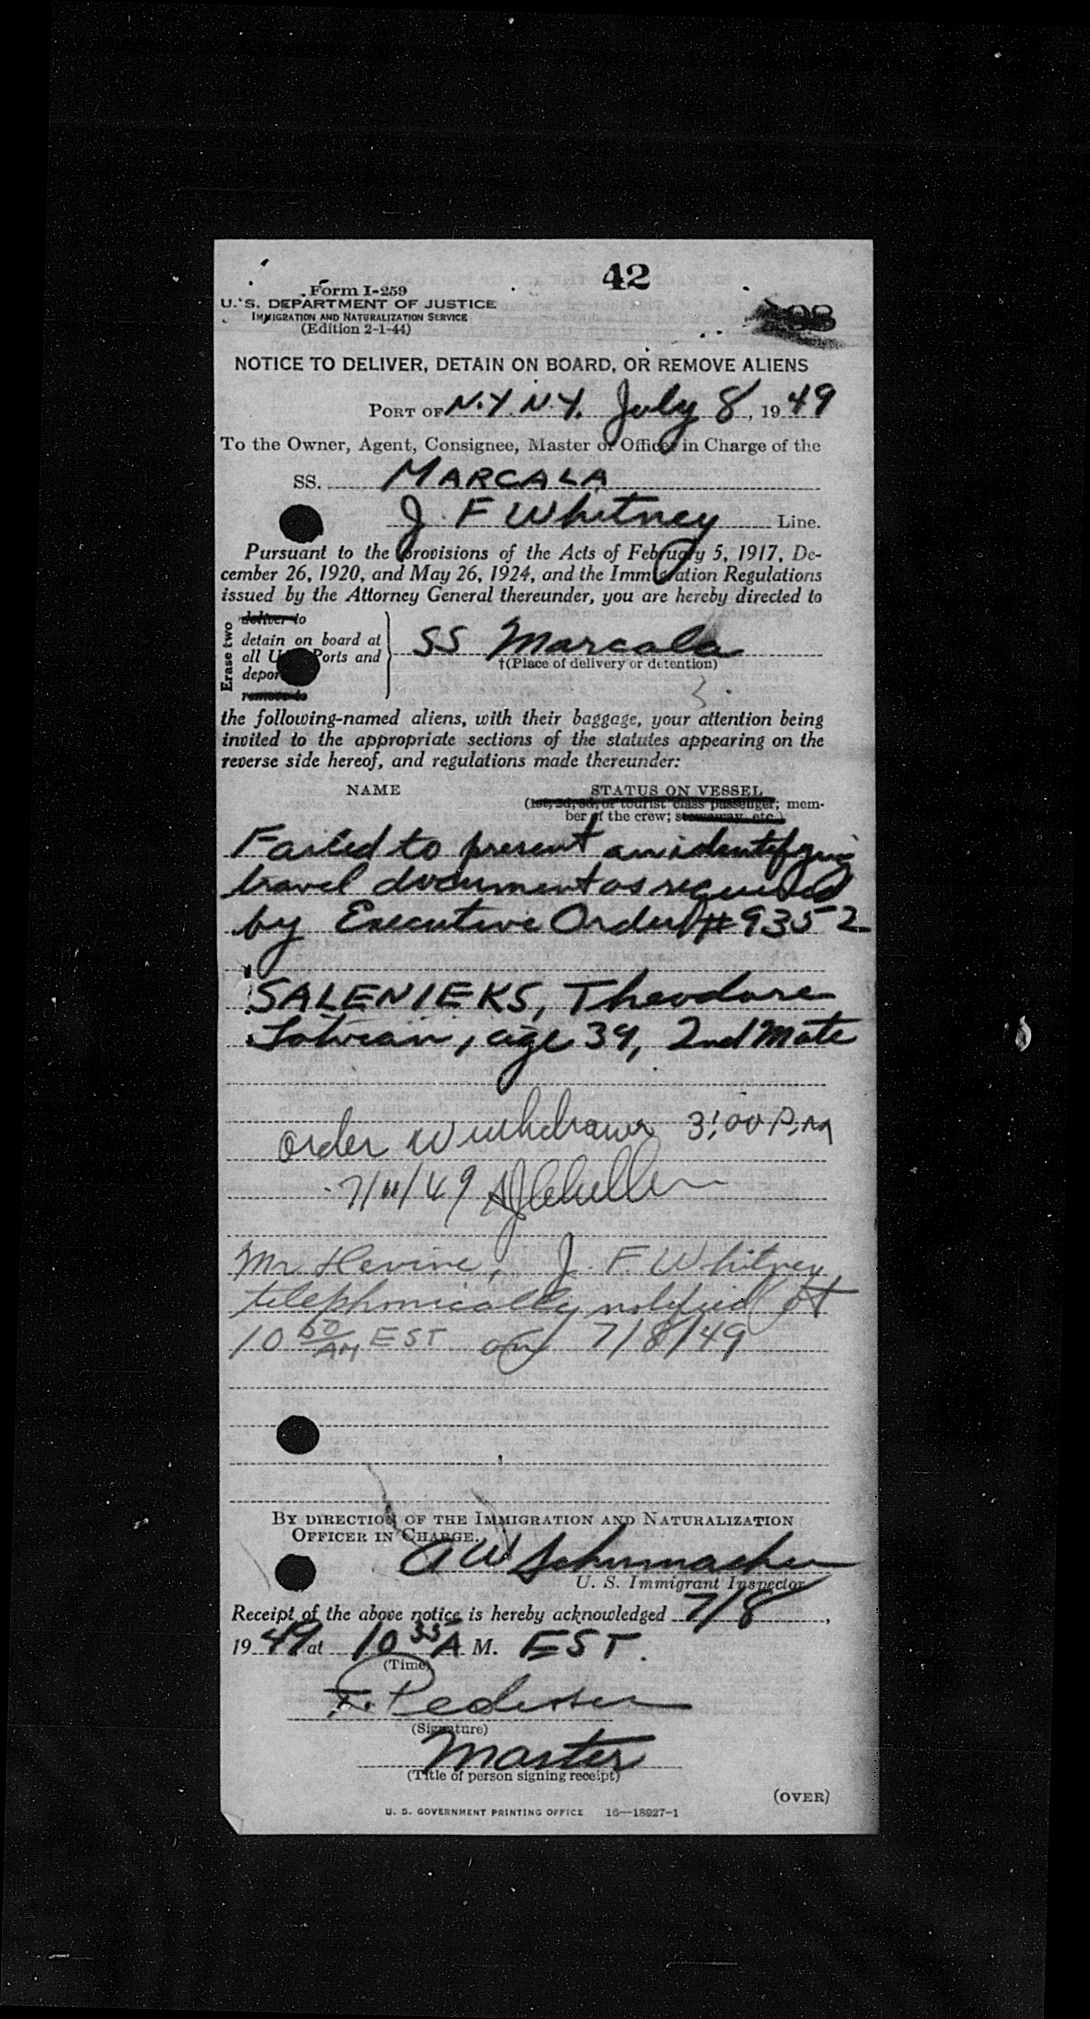 42
Form I-259
U. S. DEPARTMENT OF JUSTICE
IMMIGRATION AND NATURALIZATION SERVICE
(Edition 2-1-44)
98
NOTICE TO DELIVER, DETAIN ON BOARD, OR REMOVE ALIENS
PORT OF N.Y. N.Y. July 8, 1949
To the Owner, Agent, Consignee, Master or Officer in Charge of the
SS. MARCALA
J. F Whitney Line.
Pursuant to the provisions of the Acts of February 5, 1917, De-
cember 26, 1920, and May 26, 1924, and the Immigration Regulations
issued by the Attorney General thereunder, you are hereby directed to
Erase two
deliver to
detain on board at
all U Ports and
depor
remove to
SS Marcala
†(Place of delivery or detention)
3
the following-named aliens, with their baggage, your attention being
invited to the appropriate sections of the statutes appearing on the
reverse side hereof, and regulations made thereunder:
NAME STATUS ON VESSEL
(1st, 2d, 3d, or tourist class passenger; mem-
ber of the crew; stowaway, etc.)
Failed to present an identifying
travel document as required
by Executive Order #9352
SALENIEKS, Theodore
Latvian, age 39, 2nd Mate
Order Withdrawn 3:00 P.M
7/11/49
Mr. Levine, J. F. Whitney
telephonically notified at
10 50 AM EST on 7/8/49
BY DIRECTION OF THE IMMIGRATION AND NATURALIZATION
OFFICER IN CHARGE.
A W Schumacher
U. S. Immigrant Inspector
Receipt of the above notice is hereby acknowledged 7/8,
1949 at 10 35 A M. EST.
(Time)
F. Pedersen
(Signature)
Master
(Title of person signing receipt)
(OVER)
U. S. GOVERNMENT PRINTING OFFICE 16—18927-1